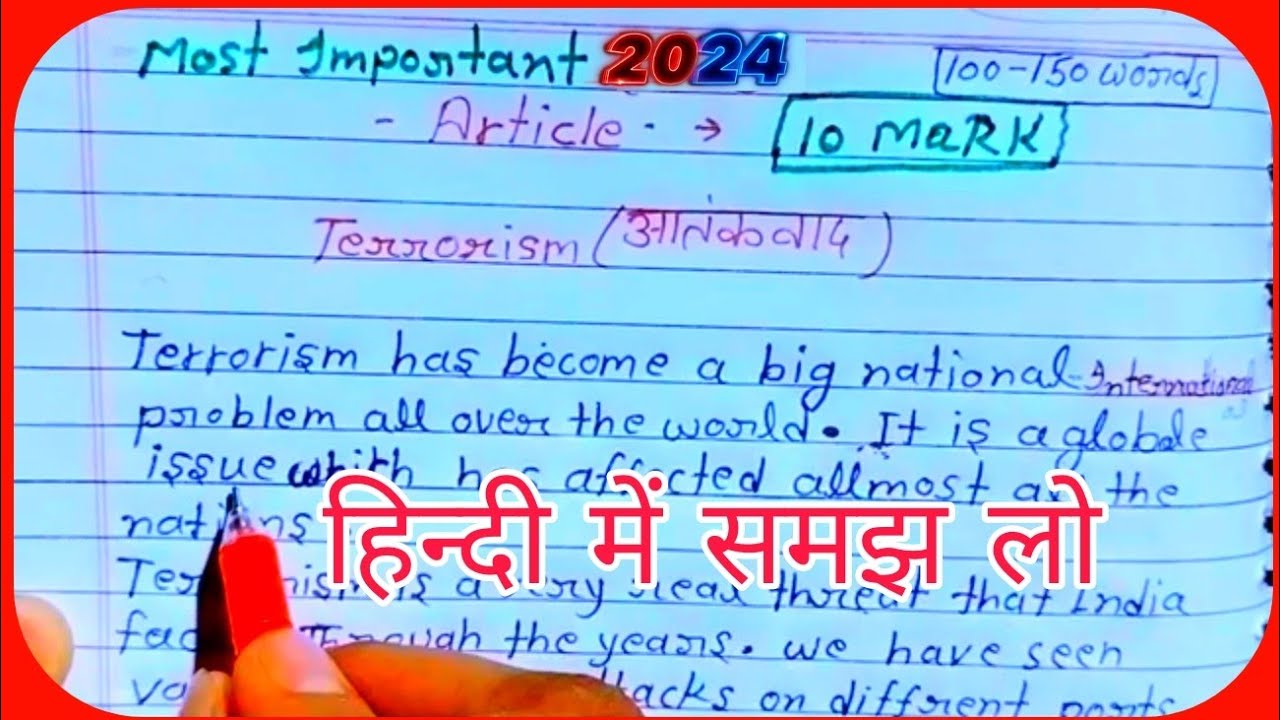 Most Important 2024
100-150 words
- Article. → 10 MaRK
Terrorism (आतंकवाद)
Terrorism has become a big national International
problem all over the world. It is a globale
issue which has affected allmost all the
हिन्दी में समझ लो
is a very real threat that India
Through the years. we have seen
on diffrent parts